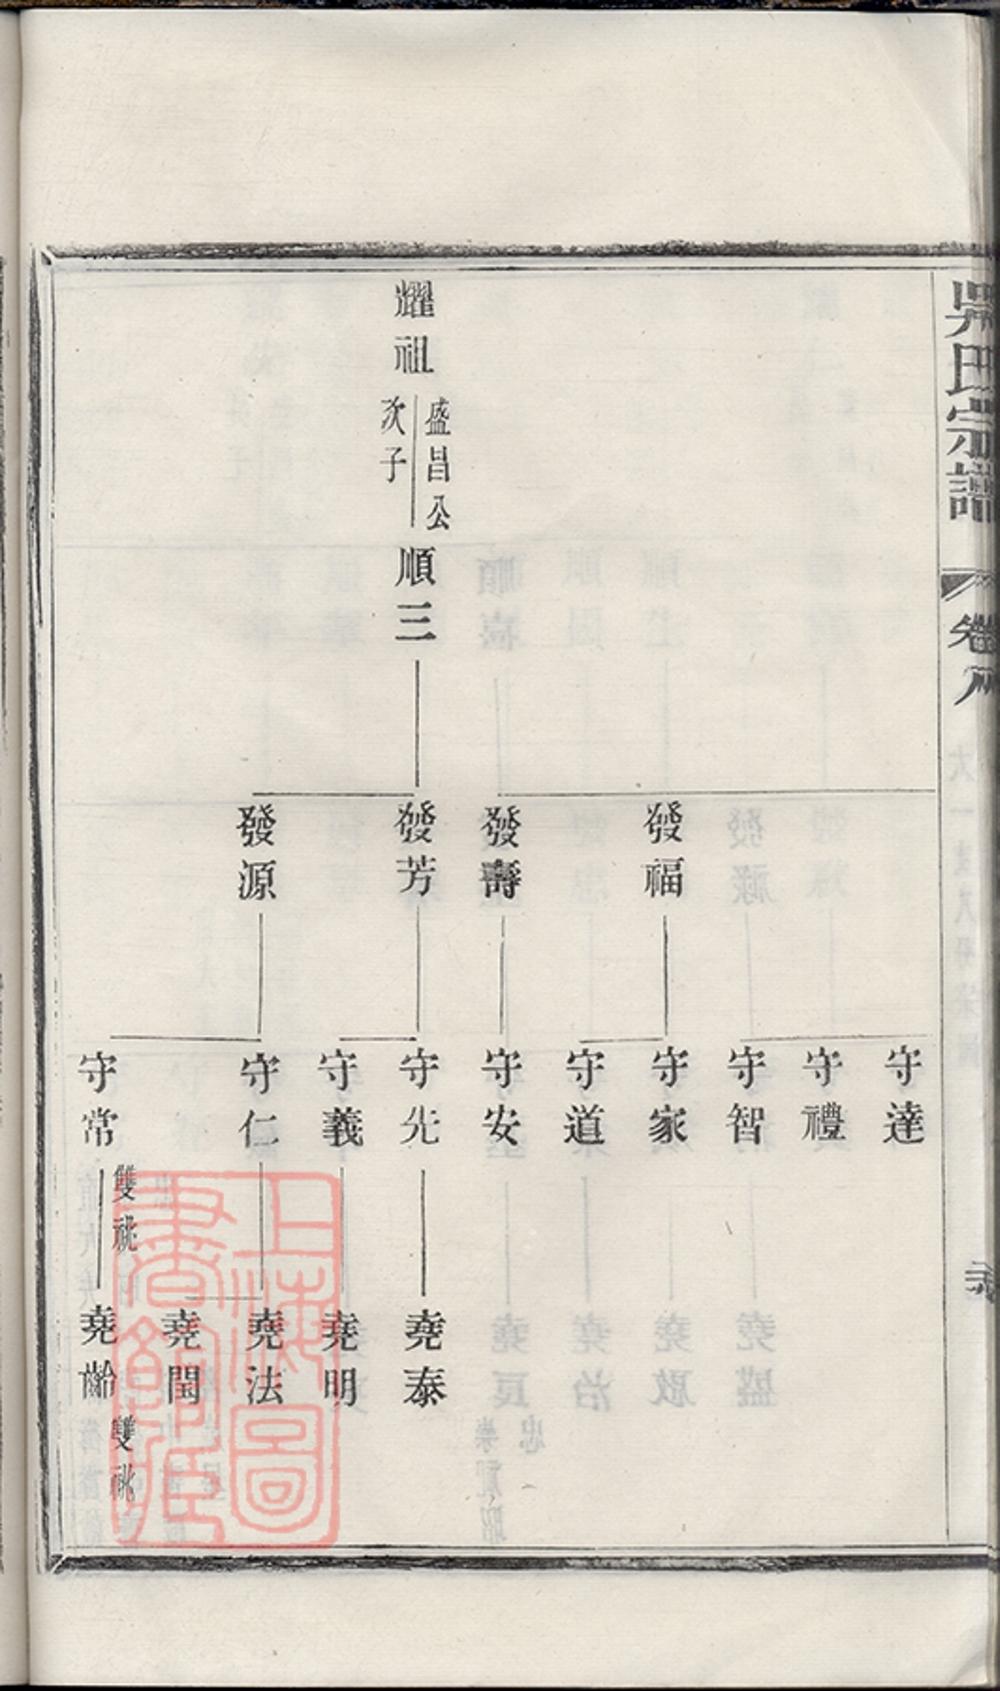 吳氏宗譜
卷
守達
守禮
守智
發福
守家
守道
發壽
守安
耀祖
盛昌公
次子
順三
發芳
守光
堯泰
守義
堯明
發源
守仁
堯法
堯閏
守常
雙祧
堯齡
雙祧
上海圖
書館藏